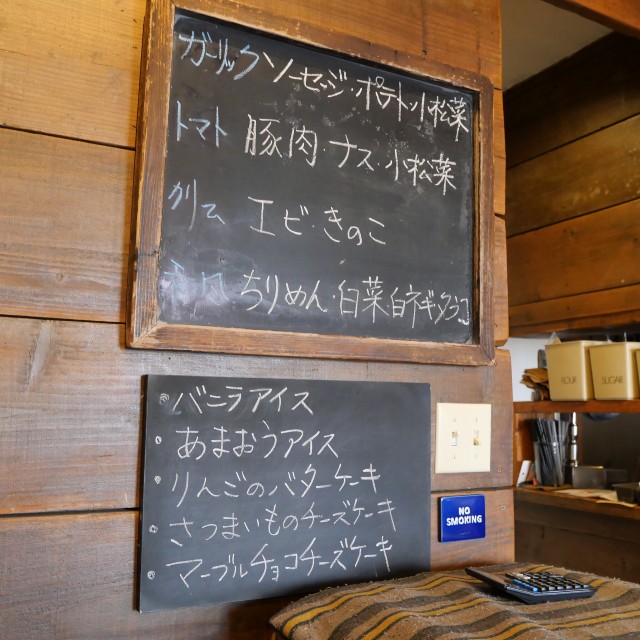 ガーリック ソーセージ・ポテト・小松菜
トマト 豚肉 ナス・小松菜
クリーム エビ・きのこ
和風 ちりめん・白菜 白ネギ・タラコ
バニラアイス
あまおうアイス
りんごのバターケーキ
さつまいものチーズケーキ
マーブルチョコチーズケーキ
NO
SMOKING
FLOUR
SUGAR